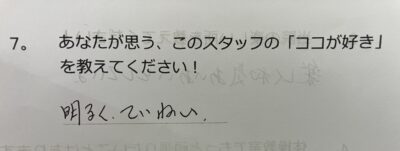 7。 あなたが思う、このスタッフの「ココが好き」
を教えてください！
明るく、ていねい、